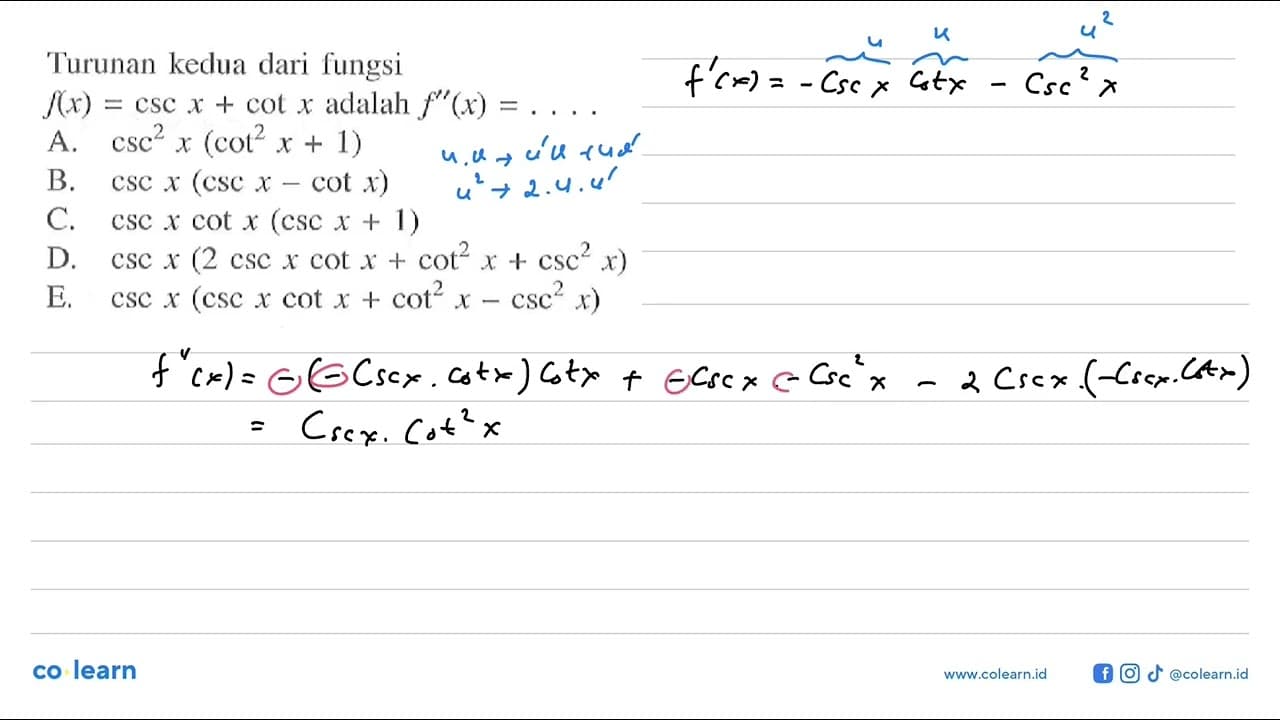 Turunan kedua dari fungsi
f(x) = csc x + cot x adalah f''(x) = . . . .
A. csc² x (cot² x + 1)
B. csc x (csc x − cot x)
C. csc x cot x (csc x + 1)
D. csc x (2 csc x cot x + cot² x + csc² x)
E. csc x (csc x cot x + cot² x − csc² x)
u u u²
f'(x) = - Csc x Cotx - Csc² x
u.u → u'u + uu'
u² → 2.u.u'
f''(x) = - (- Cscx . Cotx) Cotx + - Csc x . - Csc² x - 2 Cscx .(-Cscx.Cotx)
= Cscx. Cot² x
co learn
www.colearn.id
@colearn.id